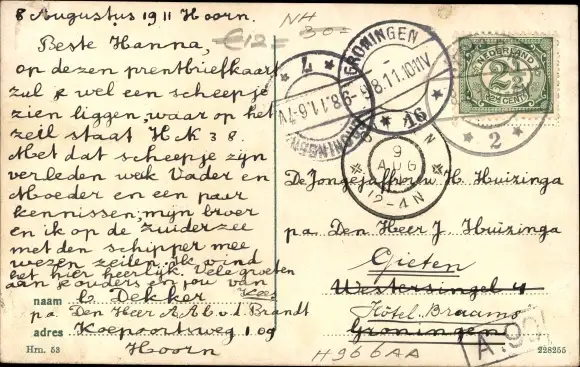 8 Augustus 1911 Hoorn.
Beste Hanna,
op dezen prentbriefkaart
zul je wel een scheepje
zien liggen, waar op het
zeil staat H.K 38
Met dat scheepje zijn
verleden week Vader en
Moeder en een paar
kennissen, mijn broer
en ik op de Zuiderzee
met den schipper mee
wezen zeilen. Ik vind
het hier heerlijk. Vele groeten
aan je ouders en jou van
naam C. Dekker
p.a. Den Heer A.A.b.v.d. Brandt
adres Koepoortsweg 109
Hoorn
Hrn. 53
€12=
NH
30=
GRONINGEN
9.8.11.10-11V
16
7
9.8.11.6-7V
GRONINGEN
NEDERLAND
2½
2½ CENT
2
9
AUG
12-4N
De Jongejaffrouw H. Huizinga
p.a. Den Heer J Huizinga
Gieten
Westersingel 4
Hôtel Braams
Groningen
H966AA
A.90
228255